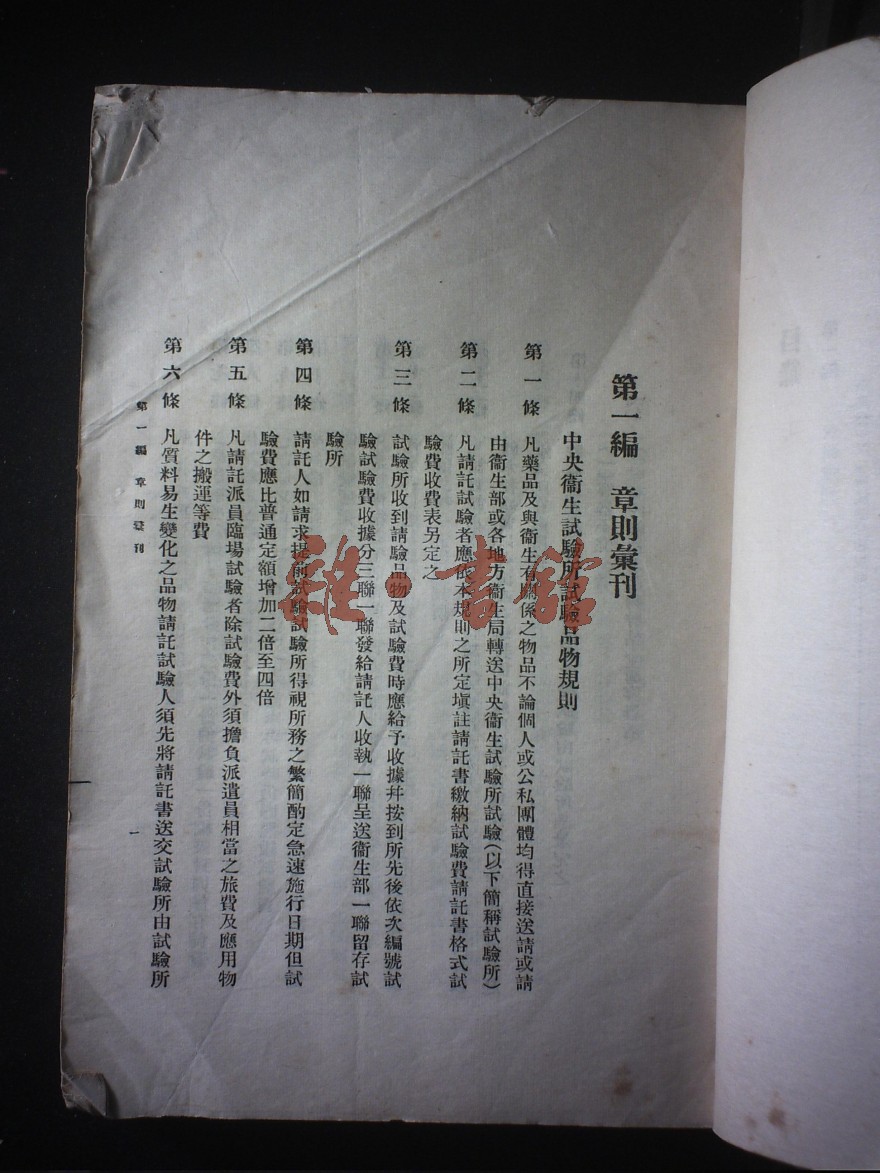 第一編　章則彙刊
中央衞生試驗所試驗品物規則
第一條　凡藥品及與衞生有關係之物品不論個人或公私團體均得直接送請或請
由衞生部或各地方衞生局轉送中央衞生試驗所試驗（以下簡稱試驗所）
第二條　凡請託試驗者應依本規則之所定塡註請託書繳納試驗費請託書格式試
驗費收費表另定之
第三條　試驗所收到請驗品物及試驗費時應給予收據幷按到所先後依次編號試
驗試驗費收據分三聯一聯發給請託人收執一聯呈送衞生部一聯留存試
驗所
第四條　請託人如請求提前試驗試驗所得視所務之繁簡酌定急速施行日期但試
驗費應比普通定額增加二倍至四倍
第五條　凡請託派員臨場試驗者除試驗費外須擔負派遣員相當之旅費及應用物
件之搬運等費
第六條　凡質料易生變化之品物請託試驗人須先將請託書送交試驗所由試驗所
第一編　章則彙刊
一
雜·書館